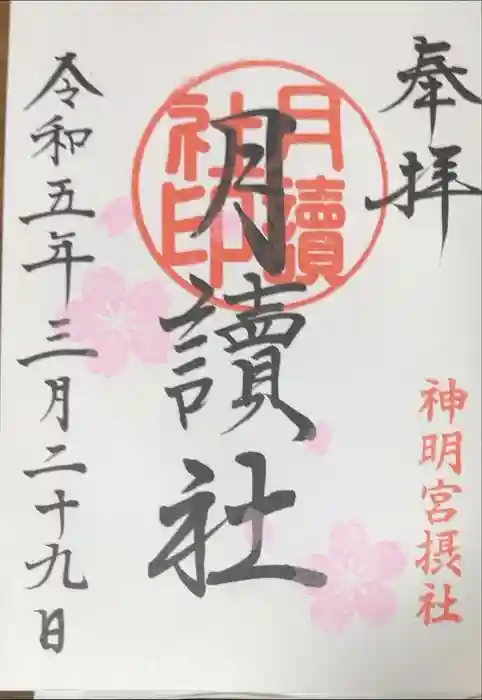 奉拝
神明宮摂社
月讀社印
月讀社
令和五年三月二十九日